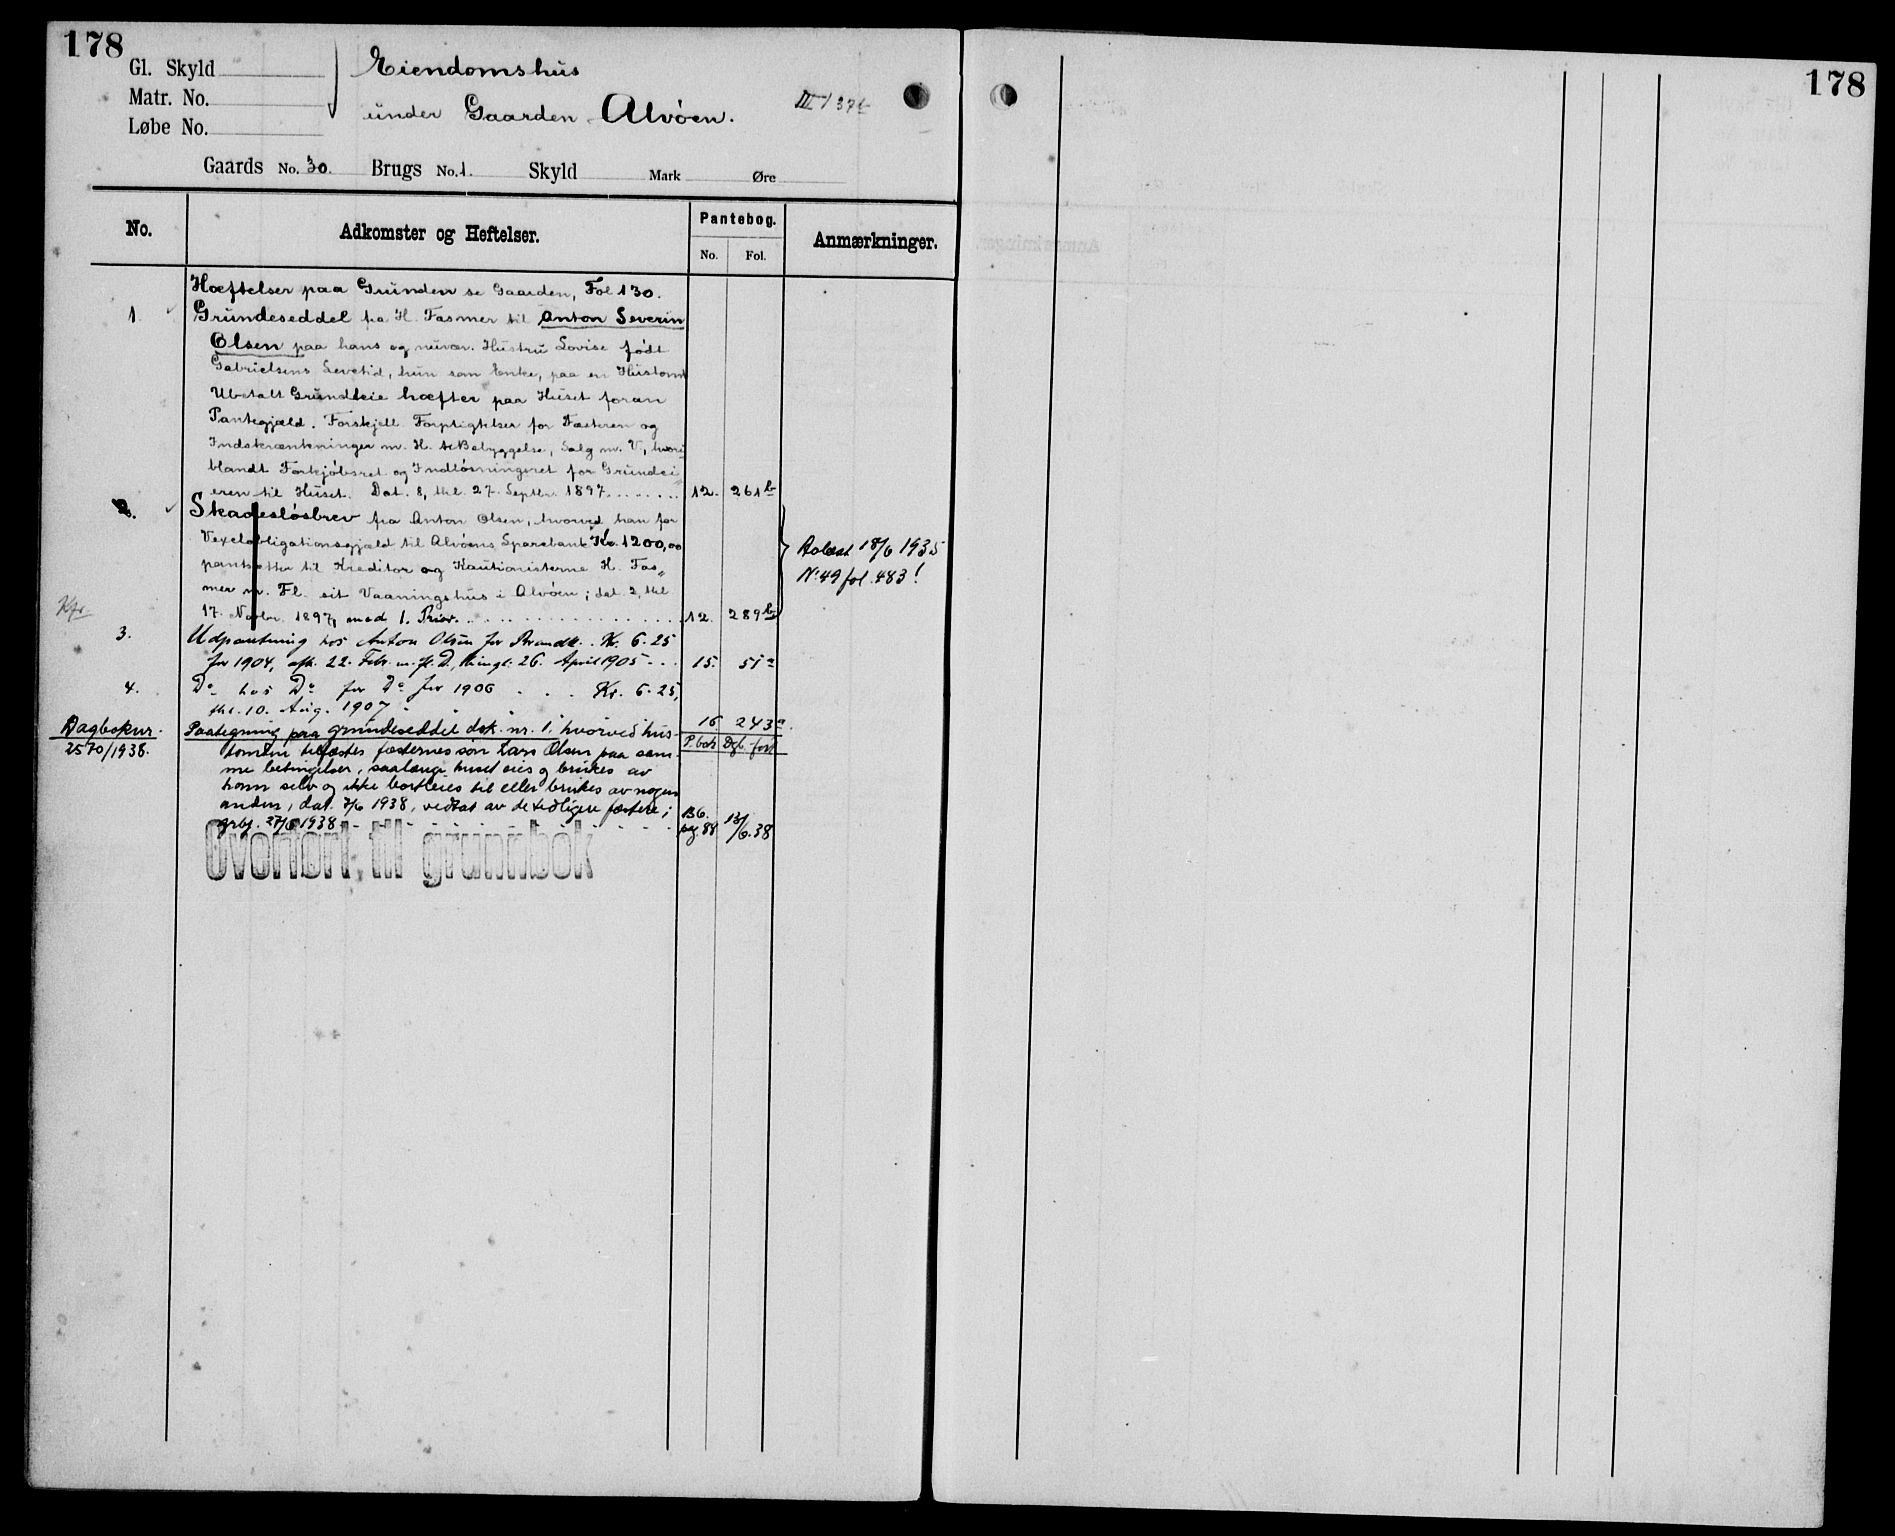 178
Gl. Skyld
Matr. No.
Løbe No.
Eiendomshus
under Gaarden Alvöen.
178
Gaards No. 30. Brugs No. 1. Skyld Mark Øre
No. Adkomster og Heftelser. Pantebog. No. Fol. Anmærkninger.
Hæftelser paa Grunden se Gaarden, Fol 130.
1 Grundeseddel fra H. Fasmer til Anton Severin
Olsen paa hans og nuvær. Hustru Lovise født
Gabrielsens Levetid, hun som Enke, paa en Hustomt
Ubetalt Grundleie hæfter paa Huset foran
Pantegjæld. Forskjell. Forpligtelser for Fæsteren og
Indskrænkninger m. H. t. Bebyggelse, Salg m. V., hvori
blandt Forkjöbsret og Indlösningsret for Grundei
eren til Huset. Dat. 8, thl. 27. Septbr. 1897........ 12. 261b
2. Skadeslösbrev fra Anton Olsen, hvorved han for
Vexelobligationsgjæld til Alvöens Sparebank Kr. 1200,00
pantsætter til Kreditor og Kautionisterne H. Fas„
mer m. Fl. sit Vaaningshus i Alvöen; dat. 2, thl
17. Novbr. 1897, med 1. Prior. 12. 289b
Avlæst 18/6 1935
N: 49 fol. 483!
3. Udpantning hos Anton Olsen for Brandk. . Kr. 6.25
for 1904, afh. 22. Febr. m. fl. D., thingl. 26. April 1905 - . . 15. 51a
4. Do hos Do for Do for 1906 . . . Kr. 6.25,
thl. 10. Aug. 1907 16 243a
Dagboknr.
2570/1938.
Paategning paa grundeseddel dok. nr. 1, hvorved hus-
P.bok Dgb. ført
tomten tilfæstes fæsternes søn Lars Olsen paa sam-
me betingelser, saalænge huset eies og brukes av
ham selv og ikke bortleies til eller brukes av nogen
anden, dat. 7/6 1938, vedtat av de tidligere fæstere;
grbf. 27/6 1938 B6. pag. 88 13/6.38
Overført til grunnbok